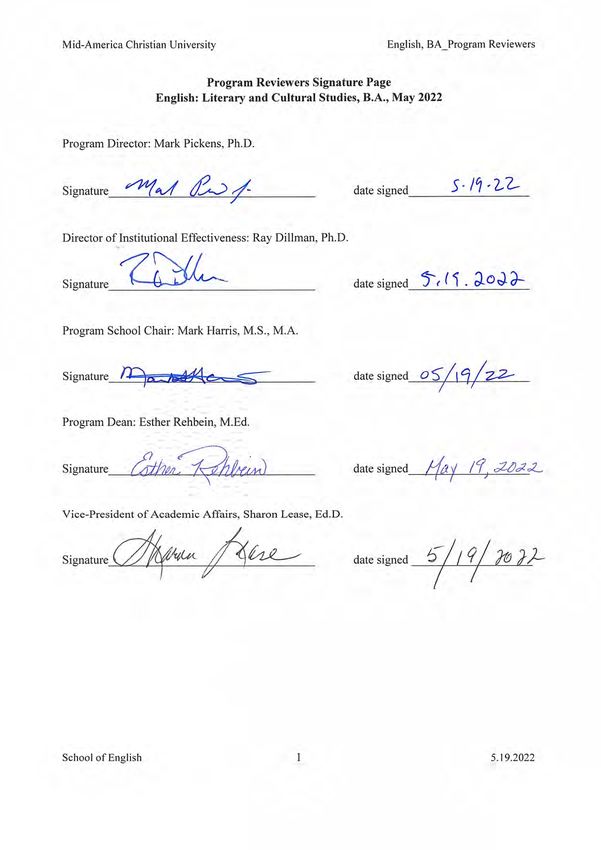 Mid-America Christian University English, BA_Program Reviewers
Program Reviewers Signature Page
English: Literary and Cultural Studies, B.A., May 2022
Program Director: Mark Pickens, Ph.D.
Signature date signed 5-19-22
Director of Institutional Effectiveness: Ray Dillman, Ph.D.
Signature date signed 5.19.2022
Program School Chair: Mark Harris, M.S., M.A.
Signature date signed 05/19/22
Program Dean: Esther Rehbein, M.Ed.
Signature Esther Rehbein date signed May 19, 2022
Vice-President of Academic Affairs, Sharon Lease, Ed.D.
Signature Sharon Lease date signed 5/19/2022
School of English 1 5.19.2022